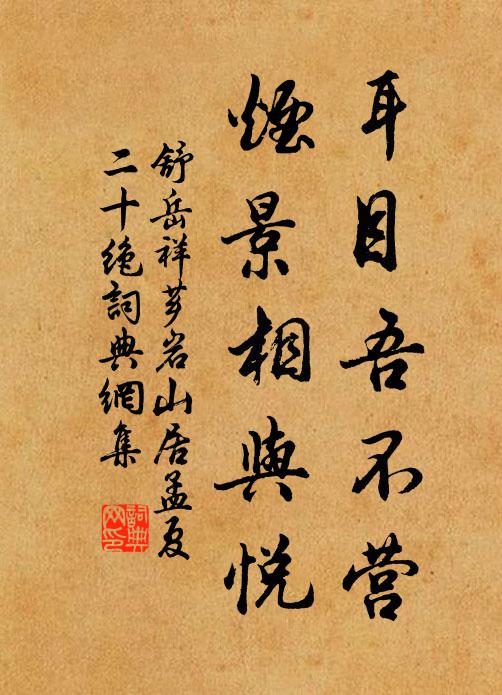 耳目吾不营
煙景相與悦
舒岳祥芗岩山居孟夏
二十绝詞典網集
詞典網印